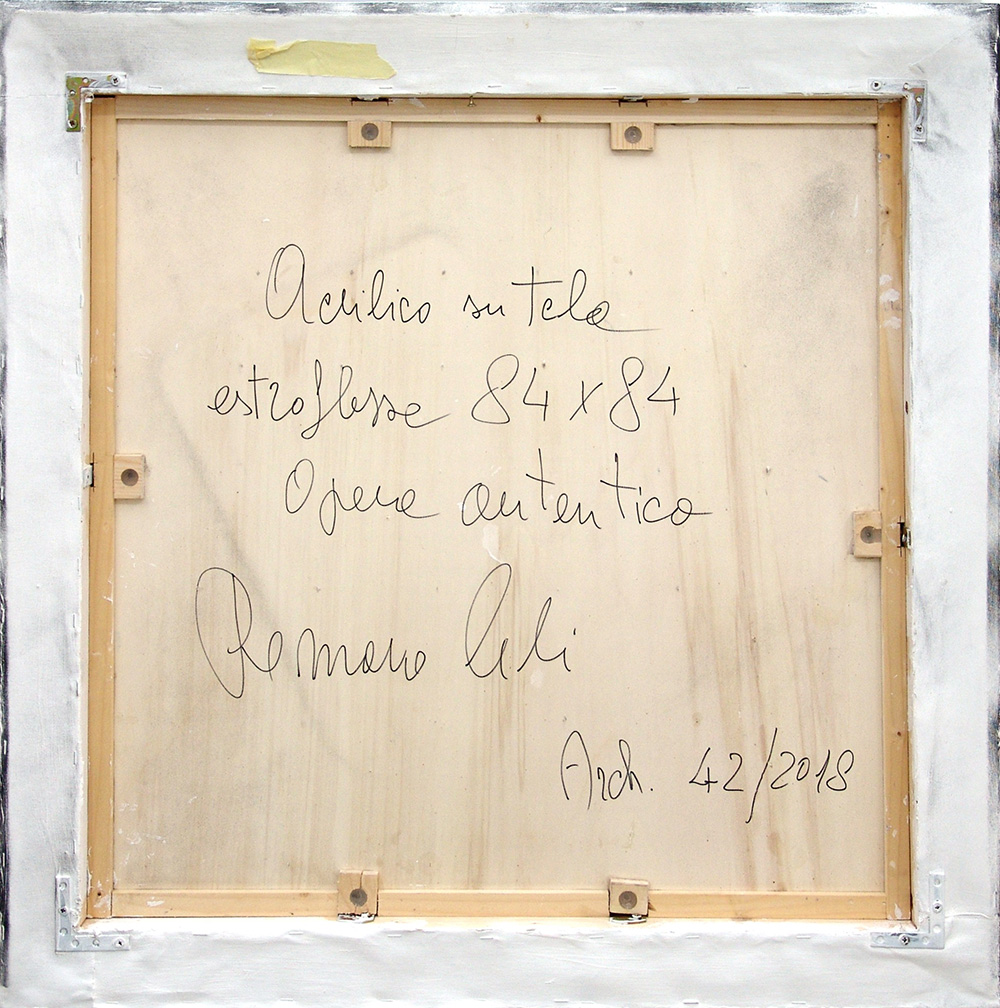 Acrilico su tela
estroflessa 84x84
Opera autentica
Romano Celi
Arch. 42/2018